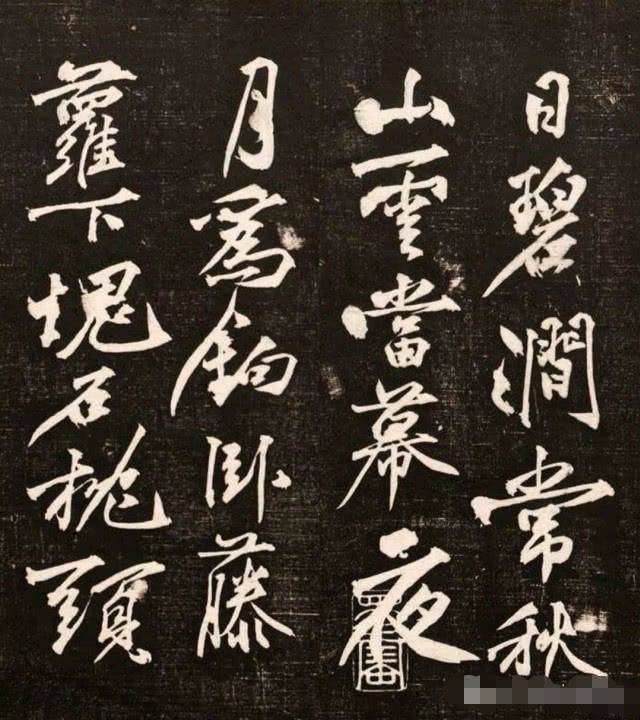 日碧澗常秋
山雲當幕夜
月為鈎臥藤
蘿下塊石枕頭